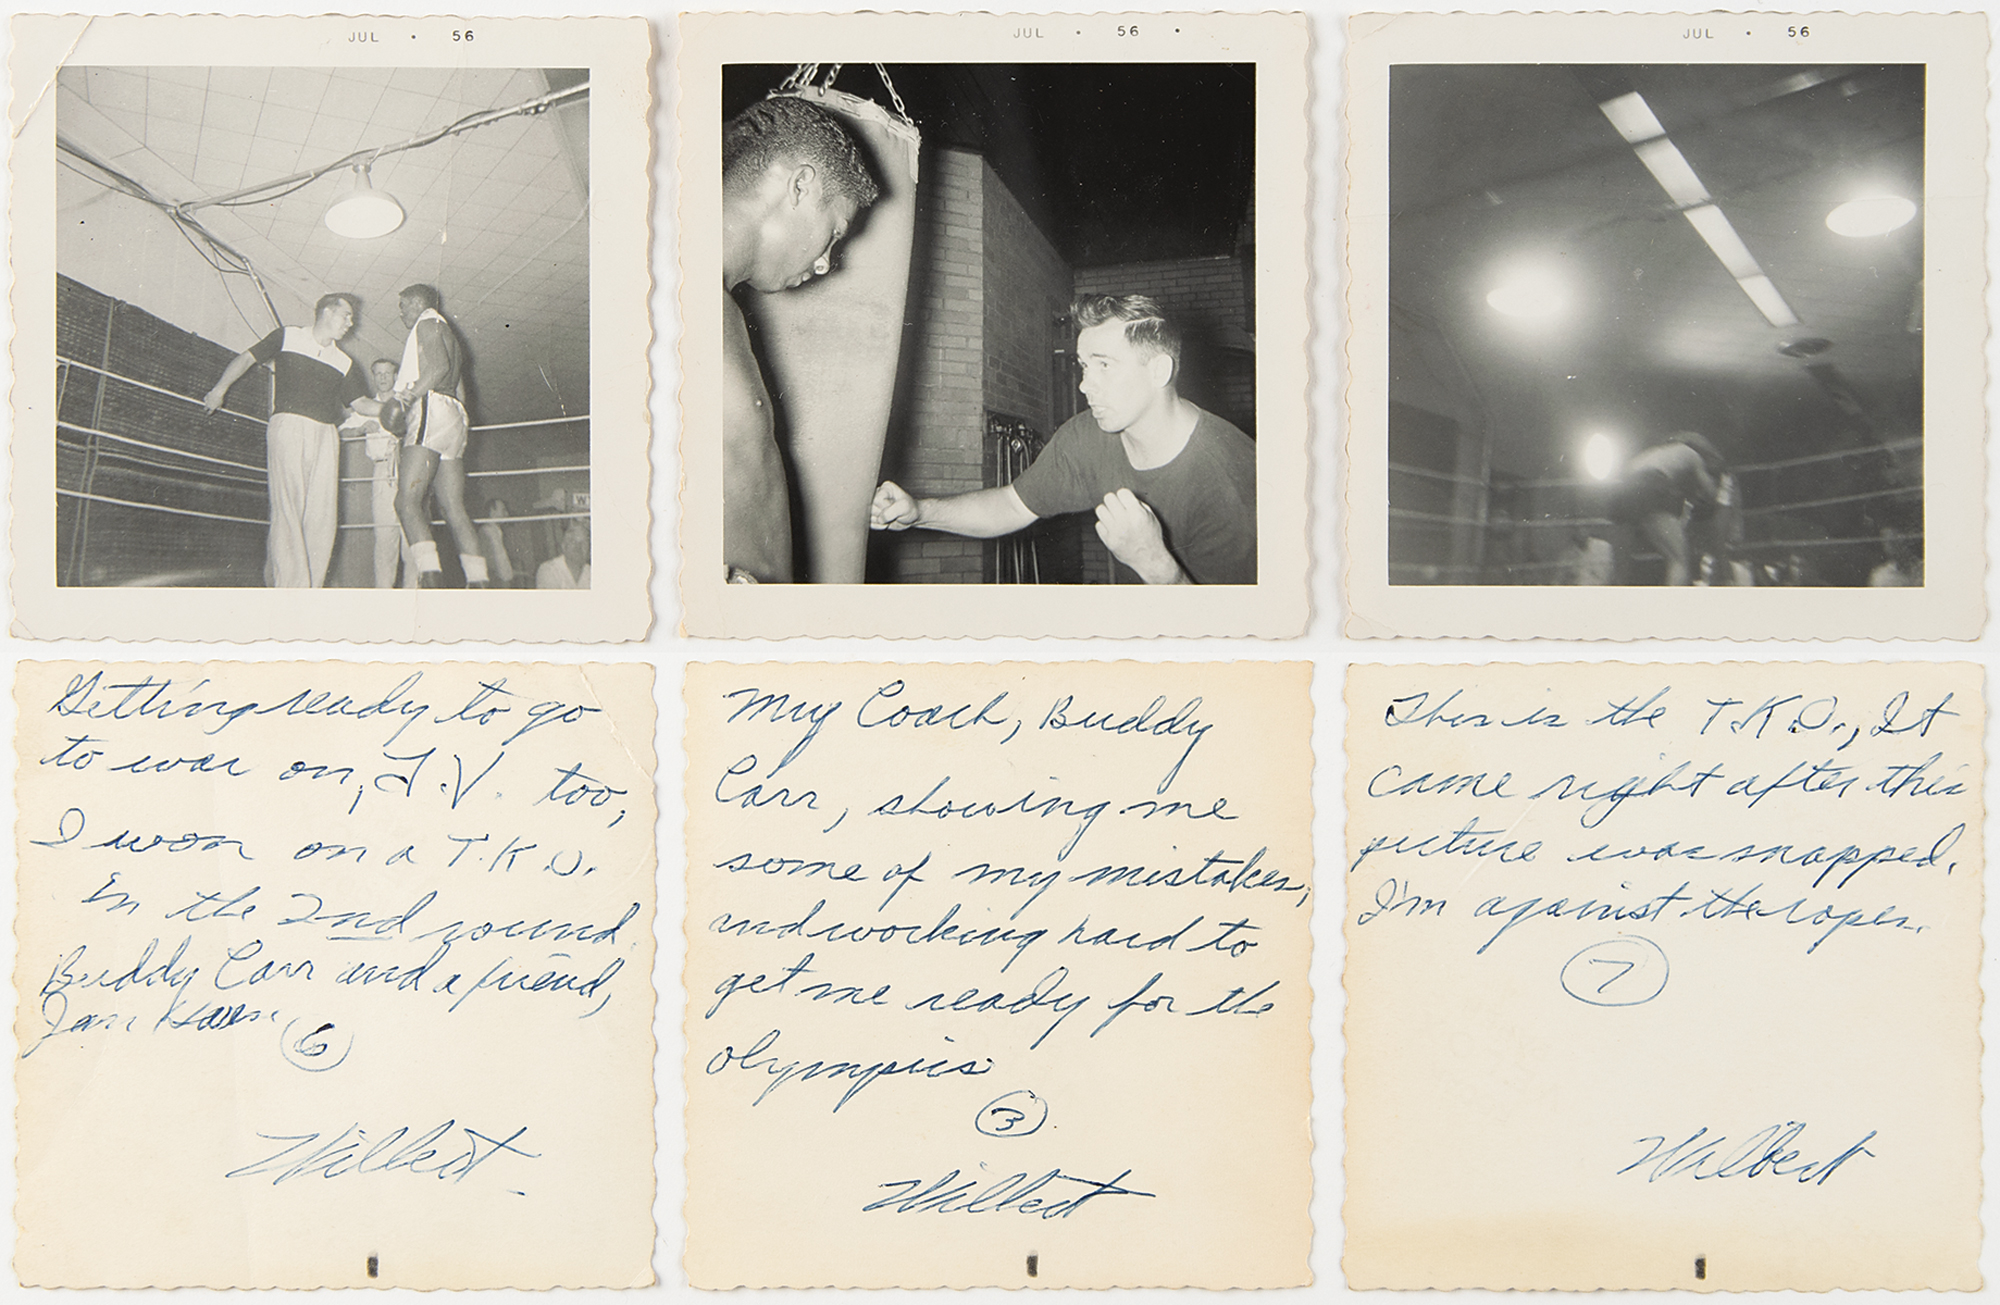 JUL • 56
JUL • 56 •
JUL • 56
W
Getting ready to go
to war on, T.V. too,
I won on a T.K.O.
In the 2nd round
Buddy Carr and a friend,
Jan
6
Wilbert
My Coach, Buddy
Carr, showing me
some of my mistakes,
and working hard to
get me ready for the
olympics
3
Wilbert
This is the T.K.O., It
came right after this
picture was snapped.
I'm against the ropes.
7
Wilbert